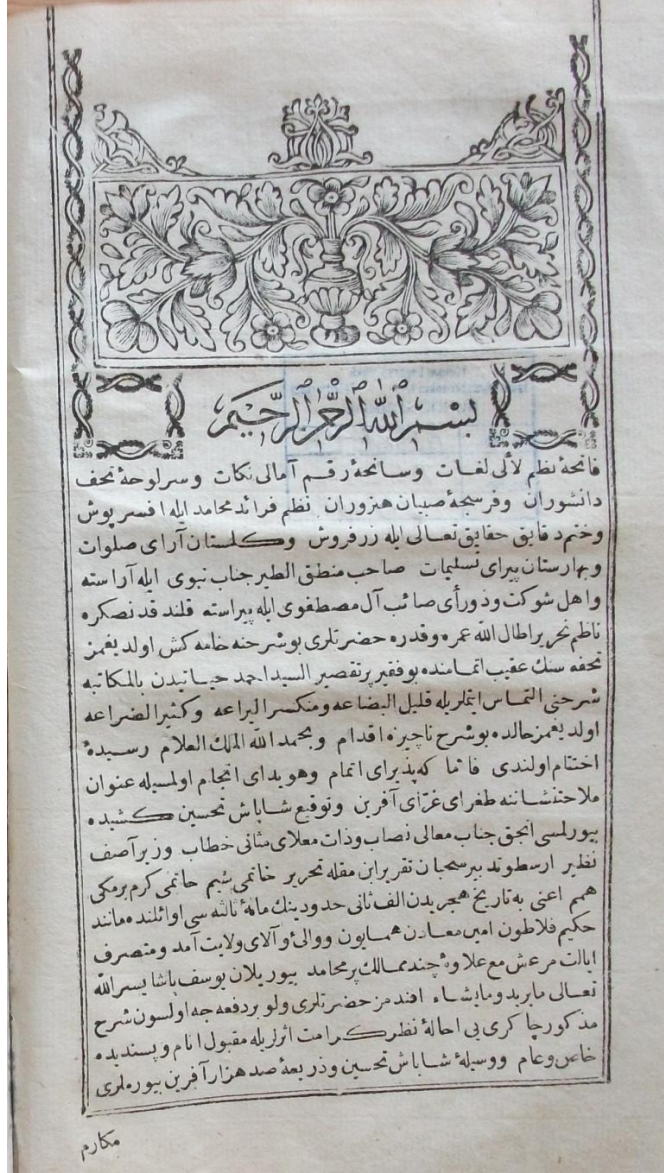 بسم الله الرحمن الرحيم
فاتحهٔ نظم لآلی لغات وسانحهٔ رقم آمالی نکات وسرلوحهٔ تحف
دانشوران وفرسجهٔ صبیان هنروران نظم فرائد محامد ایله افسر پوش
وختم دقایق حقایق تعالی ایله زرفروش وکلستان آرای صلوات
وبهارستان پیرای تسلیمات صاحب منطق الطیر جناب نبوی ایله آراسته
واهل شوکت وذورأی صائب آل مصطفوی ایله پیراسته قلندقدنصکره
ناظم نحریر اطال الله عمره وقدره حضرتلری بوشرحنه خامه کش اولدیغمز
تحفه سنك عقیب اتمامنده بوفقیر پرتقصیر السید احمد حیاتیدن بالمکاتبه
شرحنی التماس ایتملریله قلیل البضاعه ومنکسر الیراعه وکثیر الضراعه
اولدیغمز حالده بوشرح ناچیزه اقدام وبحمد الله الملك العلام رسیدهٔ
اختتام اولندی فاما که پذیرای اتمام وهویدای انجام اولمسیله عنوان
ملاحتنشاننه طغرای غرّای آفرین وتوقیع شاباش تحسین کشیده
بیورلمسی انجق جناب معالی نصاب وذات معلای مثانی خطاب وزیر آصف
نظیر ارسطو تدبیر سحبان تقریر ابن مقله تحریر خاتمی شیم حاتمی کرم برمکی
همم اعنی به تاریخ هجریدن الف ثانی حدودینك مائهٔ ثالثه سی اوائلنده مانند
حکیم فلاطون امین معادن همایون ووالیٔ والای ولایت آمد ومتصرف
ایالت مرعش مع علاوهٔ چند ممالك پرمحامد بیوریلان یوسف پاشا یسر الله
تعالی مایرید ومایشاء افندمز حضرتلری ولو بردفعه جه اولسون شرح
مذکور چاکری یی احالهٔ نظر کرامت اثرلریله مقبول انام وپسندیده
خاص وعام ووسیلهٔ شاباش تحسین وذریعهٔ صد هزار آفرین بیورملری
مکارم